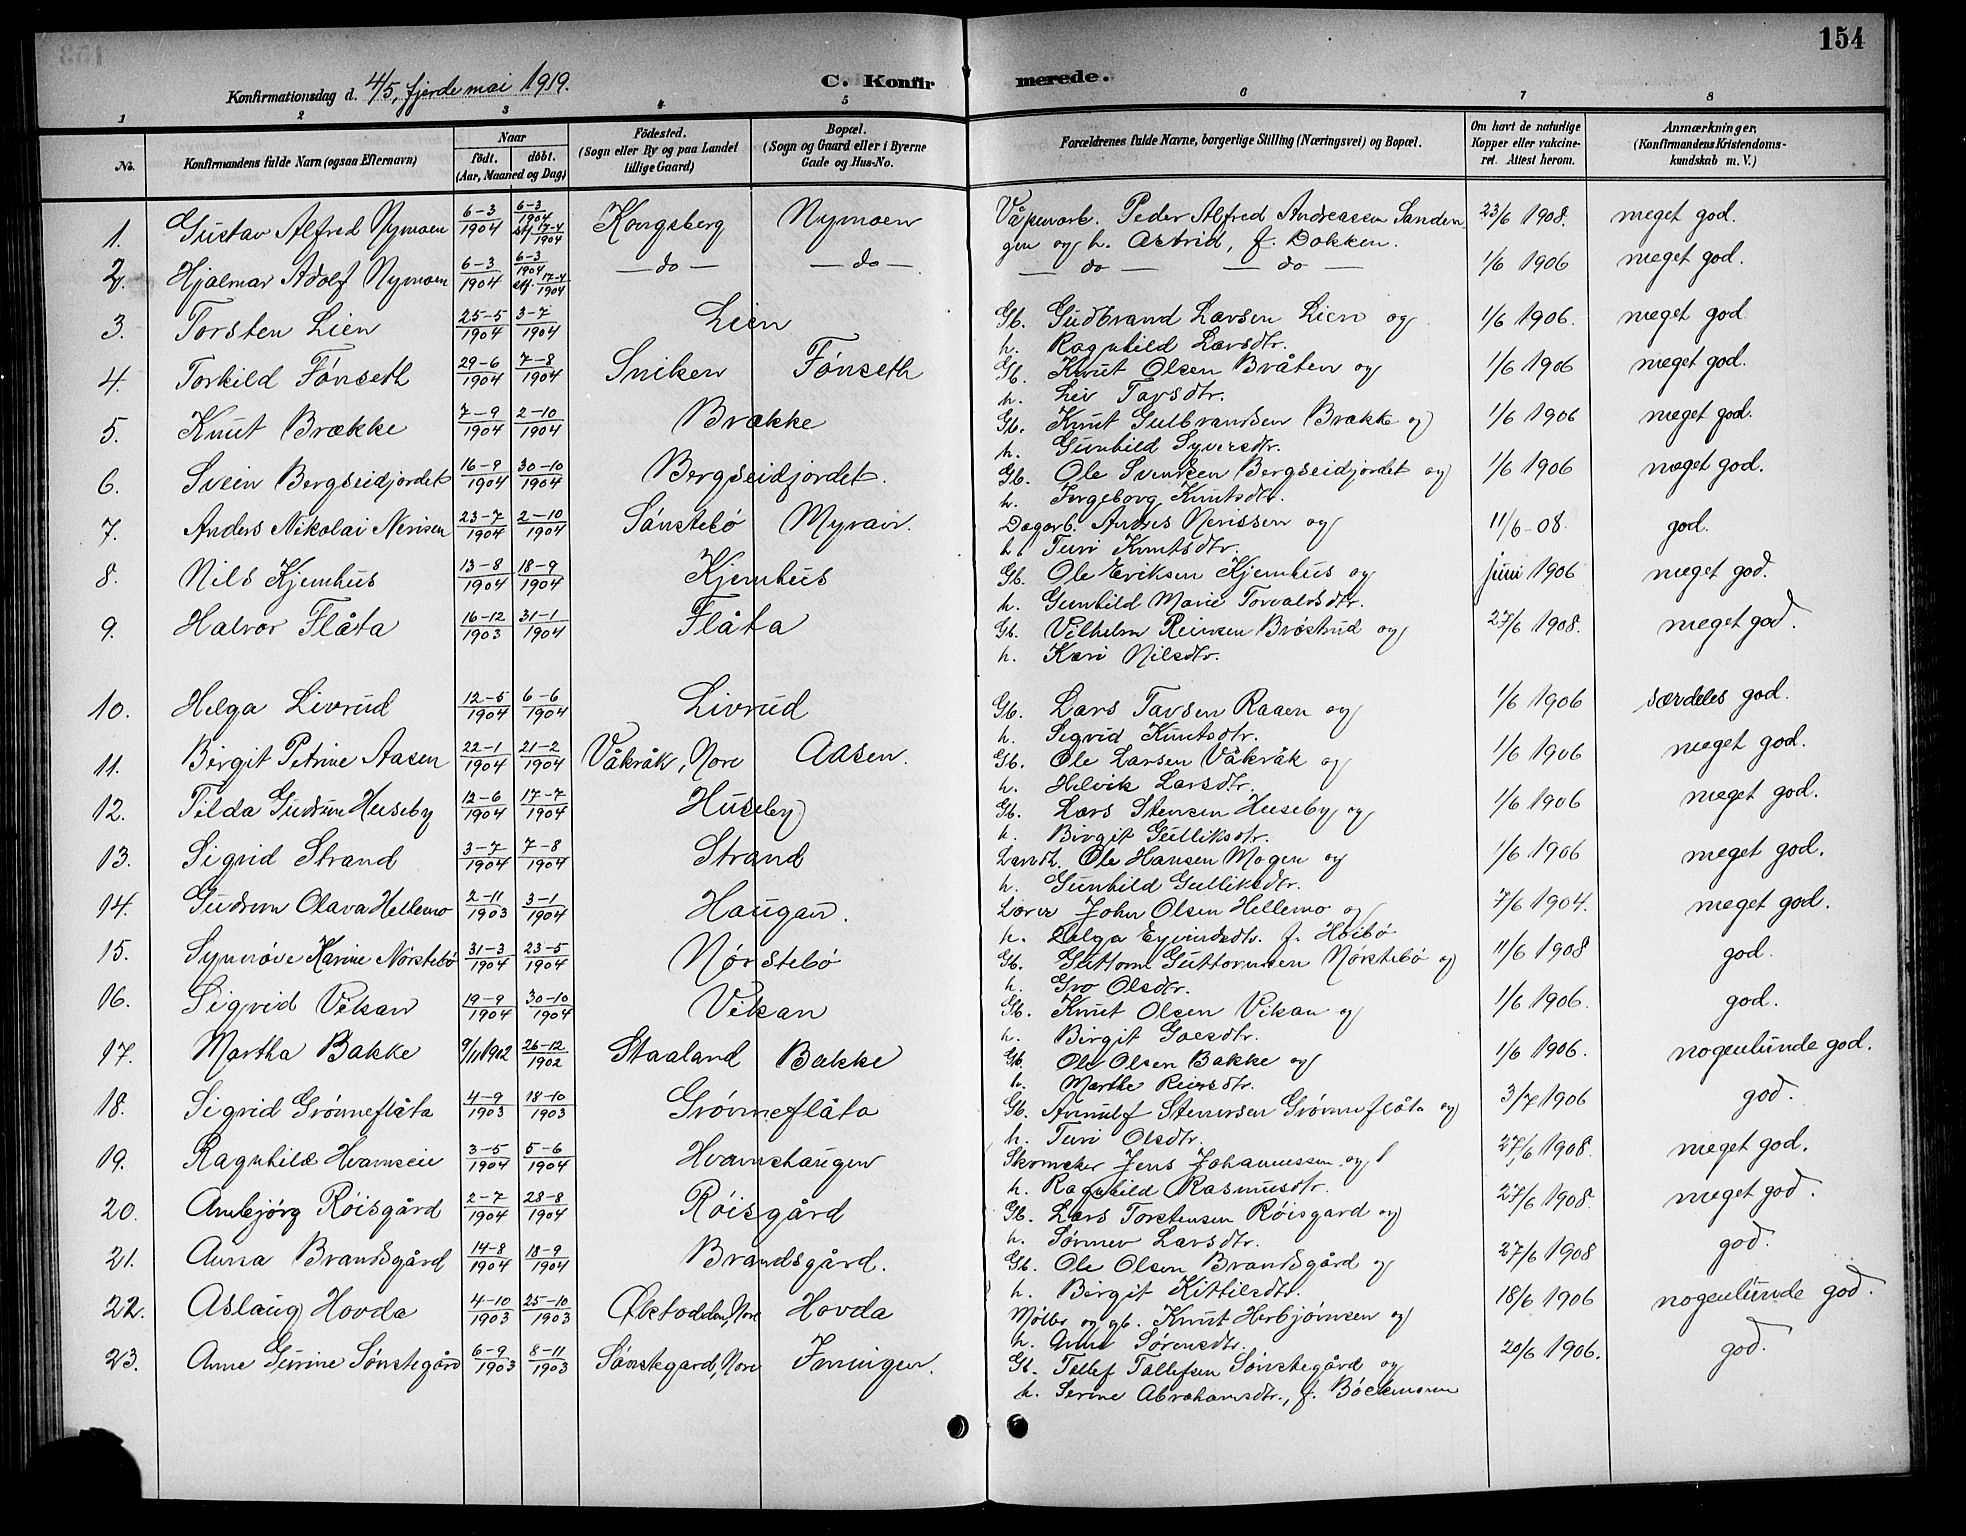 154
Konfirmationsdag d. 4/5, fjerde mai 1919.
C. Konfirmerede.
1 2 3 4 5 6 7 8
No. Konfirmandens fulde Navn (ogsaa Efternavn) Naar födt. döbt. (Aar, Maaned og Dag) Födested. (Sogn eller By og paa Landet tillige Gaard) Bopæl. (Sogn og Gaard eller i Byerne Gade og Hus-No. Forældrenes fulde Navne, borgerlige Stilling (Næringsvei) og Bopæl. Om havt de naturlige Kopper eller vakcineret. Attest herom. Anmærkninger, (Konfirmandens Kristendomskundskab m. V.)
1. Gustav Alfred Nymoen 6-3 1904 6-3 1904 stf. 17-4 1904 Kongsberg Nymoen Våpenarb. Peder Alfred Andreassen Sanden 23/6 1908. meget god.
gen og h. Astrid, f. Dokken.
2. Hjalmar Adolf Nymoen 6-3 1904 6-3 1904 stf. 17-4 1904 — do — — do — — do — — do — 1/6 1906 meget god.
3. Torsten Lien 25-5 1904 3-7 1904 Lien Gb. Gudbrand Larsen Lien og 1/6 1906. meget god
h. Ragnhild Larsdtr.
4. Torkild Fønseth 29-6 1904 7-8 1904 Sniken Fønseth Gb. Knut Olsen Bråten og 1/6 1906 meget god.
h. Liv Tovsdtr.
5. Knut Brække 7-9 1904 2-10 1904 Brække Gb. Knut Gulbrandsen Brække og 1/6 1906 meget god.
h. Gunhild Syversdtr.
6. Svein Bergseidjordet 16-9 1904 30-10 1904 Bergseidjordet. Gb. Ole Svensen Bergseidjordet og 1/6 1906 meget god.
h. Ingeborg Knutsdtr.
7. Anders Nikolai Nerisen 23-7 1904 2-10 1904 Sønstebø Myran. Dagarb. Anders Nerissen og 11/6-08. god.
h. Turi Knutsdtr.
8. Nils Kjemhus 13-8 1904 18-9 1904 Kjemhus Gb. Ole Eriksen Kjemhus og juni 1906 meget god.
h. Gunhild Marie Torvaldsdtr.
9. Halvor Flåta 16-12 1903 31-1 1904 Flåta Gb. Vilhelm Reiersen Brøstrud og 27/6 1908. meget god.
h. Kari Nilsdtr.
10. Helga Livrud 12-5 1904 6-6 1904 Livrud Gb. Lars Tovsen Raaen og 1/6 1906 særdeles god.
h. Sigrid Knutsdtr.
11. Birgit Petrine Aasen 22-1 1904 21-2 1904 Våkråk, Nore Aasen. Gb. Ole Larsen Våkråk og 1/6 1906 meget god.
h. Helvik Larsdtr.
12. Tilda Gudrun Huseby 12-6 1904 17-7 1904 Huseby Gb. Lars Stensen Huseby og 1/6 1906 meget god.
h. Birgit Gulliksdtr.
13. Sigrid Strand 3-7 1904 7-8 1904 Strand Landh. Ole Hansen Mogen og 1/6 1906 meget god.
h. Gunhild Gulliksdtr.
14. Gudrun Olava Hellemo 2-11 1903 3-1 1904 Haugan. Lærer John Olsen Hellemo og 7/6 1904. meget god.
h. Helga Eyvindsdtr. f. Hoibø
15. Synnøve Karine Nørstebø 31-3 1904 23-5 1904 Nørstebø Gb. Guttorm Guttormsen Nørstebø og 11/6 1908 god.
h. Gro Olsdtr.
16. Sigrid Vikan 19-9 1904 30-10 1904 Vikan Gb. Knut Olsen Vikan og 1/6 1906. god.
h. Birgit Goesdtr.
17. Martha Bakke 9/11 1902 26-12 1902 Staaland Bakke Gb. Ole Olsen Bakke og 1/6 1906. nogenlunde god.
h. Marthe Reiersdtr.
18. Sigrid Grønneflåta 4-9 1903 18-10 1903 Grønneflåta Gb. Arnulf Stenersen Grønneflåta og 3/7 1906 god.
h. Turi Olsdtr.
19. Ragnhild Hvamseie 3-5 1904 5-6 1904 Hvamshaugen Skomaker Jens Johannessen og 27/6 1908. meget god.
h. Ragnhild Rasmusdtr.
20. Ambjørg Røisgård 2-7 1904 28-8 1904 Røisgård Gb. Lars Torstensen Røisgard og 27/6 1908. meget god.
h. Sønnev Larsdtr.
21. Anna Brandsgård 14-8 1904 18-9 1904 Brandsgård. Gb. Ole Olsen Brandsgård og 27/6 1908 god.
h. Birgit Kittilsdtr.
22. Aslaug Hovda 4-10 1903 25-10 1903 Økstodden, Nore Hovda Møller og gb. Knut Herbjørnsen og 18/6 1906 nogenlunde god.
h. Anne Sørensdtr.
23. Anne Gurine Sønstegård 6-9 1903 8-11 1903 Sønstegard, Nore Imingen. Gb. Tollef Tollefsen Sønstegård og 20/6 1906. god.
h. Serine Abrahamsdtr., f. Böckmann